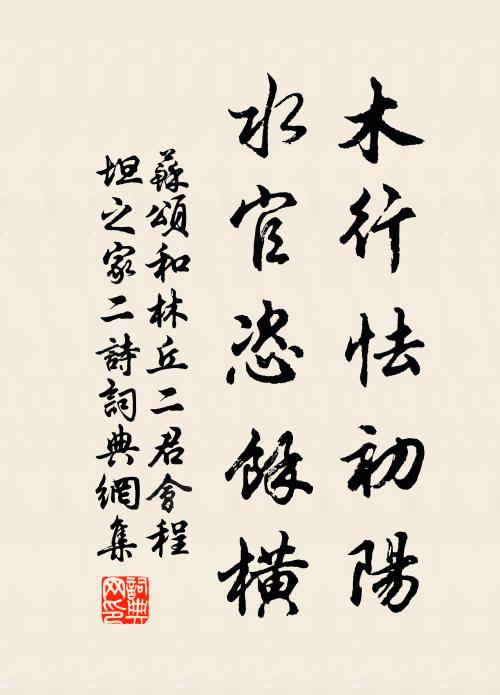 木行怯初陽
水官恣餘橫
蘇頌和林丘二君會程
坦之家二詩詞典網集